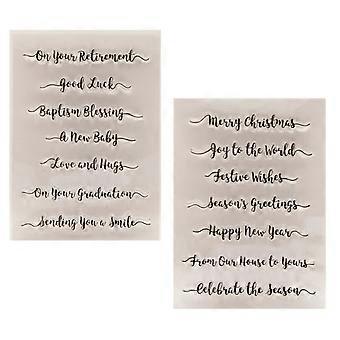 On Your Retirement
Good Luck
Baptism Blessing
A New Baby
Love and Hugs
On Your Graduation
Sending You a Smile
Merry Christmas
Joy to the World
Festive Wishes
Season's Greetings
Happy New Year
From Our House to Yours
Celebrate the Season